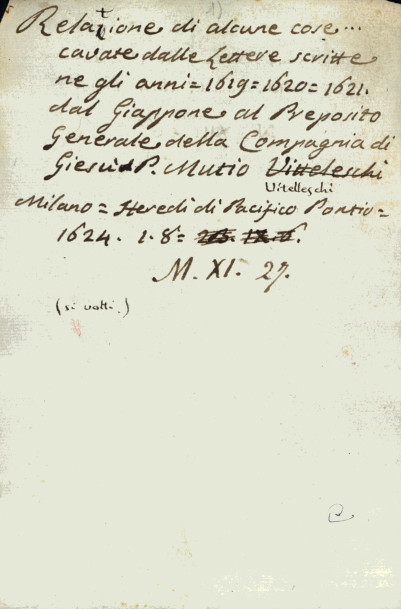 1)
Relatione di alcune cose...
cavate dalle Lettere scritte
ne gli anni = 1619 = 1620 = 1621.
dal Giappone al Preposito
Generale della Compagnia di
Giesù P. Mutio Vitteleschi
Vitelleschi
Milano = Heredi di Pacifico Pontio =
1624. 1. 8 =
M. XI. 27.
(si volti.)